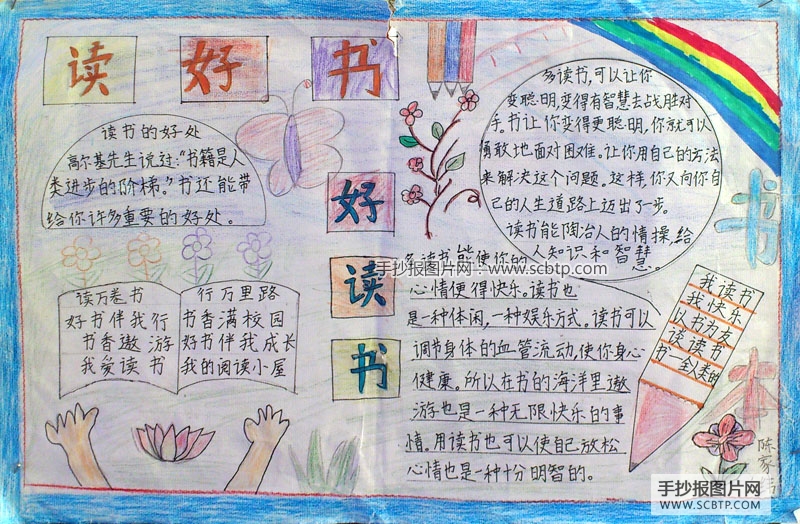 读 好 书
读书的好处
高尔基先生说过:“书籍是人
类进步的阶梯。”书还能带
给你许多重要的好处。
好
读
书
多读书,可以让你
变聪明,变得有智慧去战胜对
手。书让你变得更聪明,你就可以
勇敢地面对困难。让你用自己的方法
来解决这个问题。这样,你又向你自
己的人生道路上迈出了步。
读书能陶冶人的情操,给
人知识和智慧。
多读书能使你的
心情便得快乐。读书也
是一种体闲,一种娱乐方式。读书可以
调节身体的血管流动,使你身心
健康。所以在书的海洋里遨
游也是一种无限快乐的事
情。用读书也可以使自己放松
心情也是一种十分明智的。
读万卷书
好书伴我行
书香遨游
我爱读书
行万里路
书香满校园
好书伴我成长
我的阅读小屋
我读书
我快乐
以书为友
读读书
书一全人类的
书
本
陈家
手抄报图片网:www.scbtp.com
手抄报图片网
WWW.SCBTP.COM